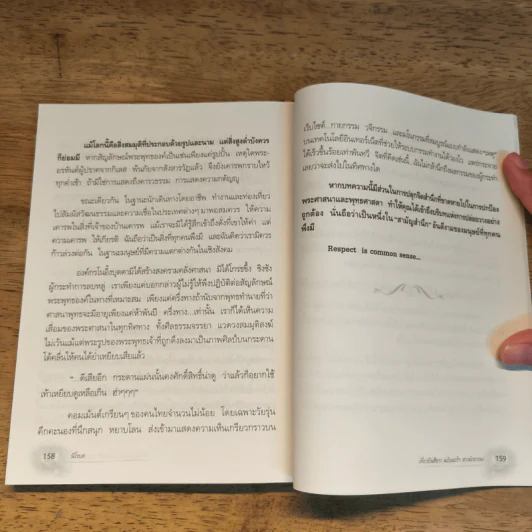 แม้โลกนี้คือสิ่งสมมุติที่ประกอบด้วยรูปและนาม แต่สิ่งสูงค่าบังควร
ก็ย่อมมี หากสัญลักษณ์พระพุทธองค์เป็นเช่นเพียงแค่รูปปั้น เหตุใดพระ
อรหันต์ผู้ปราศจากกิเลส พ้นภัยจากสังสารวัฏแล้ว จึงยังเคารพกราบไหว้
ทุกค่ำเช้า ถ้ามิใช่การแสดงถึงคารวธรรม การแสดงความกตัญญู
ขณะเดียวกัน ในฐานะนักเดินทางโดยอาชีพ ทำงานและท่องเที่ยว
ไปสัมผัสวัฒนธรรมและความเชื่อในประเทศต่างๆ มาพอสมควร ให้ความ
เคารพในสิ่งที่เจ้าของบ้านเคารพ แม้เราจะมิได้รู้สึกเข้าถึงดังที่เขาให้ค่า แต่
ความเคารพ ให้เกียรติ ฉันถือว่าเป็นสิ่งที่ทุกคนพึงมี และฉันคิดว่าเรามีควร
ก้าวล่วงต่อกัน ในฐานะมนุษย์ที่มีความแตกต่างกันในเชิงสังคม
องค์กรโนอิ้งบุดดามิได้สร้างสงครามคลั่งศาสนา มิได้โกรธขึ้ง ชิงชัง
ผู้กระทำการลบหลู่ เราเพียงแค่บอกกล่าวผู้ไม่รู้ให้พึงปฏิบัติต่อสัญลักษณ์
พระพุทธองค์ในทางที่เหมาะสม เพียงแค่ครึ่งทางถ้านับจากพุทธทำนายที่ว่า
ศาสนาพุทธจะมีอายุเพียงแค่ห้าพันปี ครึ่งทาง...เท่านั้น เราก็ได้เห็นความ
เสื่อมของพระศาสนาในทุกทิศทาง ทั้งศีลธรรมจรรยา แวดวงสมมุติสงฆ์
ไม่เว้นแม้แต่พระรูปของพระพุทธเจ้าที่ถูกดึงลงมาเป็นภาพศิลป์บนกระดาน
โต้คลื่นให้คนได้ย่ำเหยียบเสียแล้ว
"..ดีเสียอีก กระดานแผ่นนั้นคงศักดิ์สิทธิ์น่าดู ว่าแล้วก็อยากใช้
เท้าเหยียบดูเหลือเกิน ฮ่าๆๆๆ"
คอมเม้นต์เกรียนๆ ของคนไทยจำนวนไม่น้อย โดยเฉพาะวัยรุ่น
คึกคะนองที่นึกสนุก หยาบโลน ส่งเข้ามาแสดงความเห็นเกรียวกราวบน
158
เว็บไซต์...กายกรรม วจีกรรม และมโนกรรมที่สมบูรณ์แบบกำลังแสดงฯ
บนเทคโนโลยีอินเทอร์เน็ตที่ช่วยให้ระบบการทำงานได้ว่องไว แพร่กระจาย
ได้เร็วขึ้นร้อยเท่าพันทวี จิตที่คิดเช่นนี้ ฉันไม่กล้านึกถึงผลกรรมของผู้กระทำ
เลยว่าจะส่งไปในทิศทางใด
หากบทความนี้มีส่วนในการปลุกจิตสำนึกที่ขาดหายไปในการปกป้อง
พระศาสนาและพุทธศาสดา ทำให้คุณได้เข้าถึงบริบทแห่งการปล่อยวางอย่าง
ถูกต้อง นั่นถือว่าเป็นหนึ่งใน "สามัญสำนึก" อันดีงามของมนุษย์ที่ทุกคน
พึงมี
Respect is common sense...
159